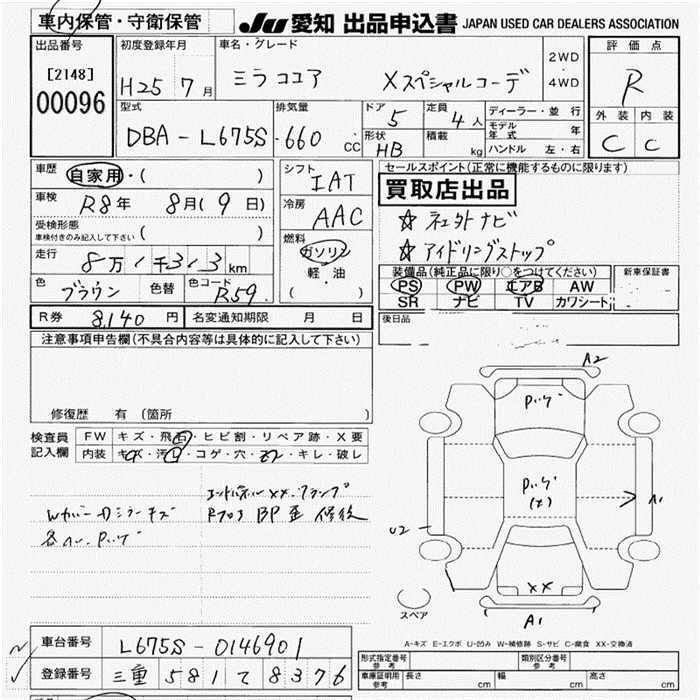 車内保管・守衛保管
JU 愛知 出品申込書 JAPAN USED CAR DEALERS ASSOCIATION
出品番号
[2148]
00096
初度登録年月
H25 7月
車名・グレード
ミラ ココア Xスペシャルコーデ
2WD
・
4WD
評価点
R
外装 内装
C C
型式
DBA-L675S
排気量
660 CC
ドア
5
形状
HB
定員
4人
積載
kg
ディーラー・並行
モデル年式 年
ハンドル 左・右
車歴
自家用・( )
車検
R8年 8月(9日)
受検形態
車検付きのみ記入して下さい ( )
走行
8万1千313km
色
ブラウン
色替
色コード
R59
シフト
IAT
冷房
AAC
燃料
ガソリン
軽・油
( )
セールスポイント(正常に機能するものに限ります)
買取店出品
☆ アイドリングストップ
装備品(純正品に限り○をつけてください)
PS PW エアB AW
SR ナビ TV カワシート
新車保証書
後日品
R券 8,140円
名変通知期限 月 日
注意事項申告欄(不具合内容等は具体的に記入して下さい)
修復歴 有 (箇所 )
検査員
記入欄
FW キズ・飛石・ヒビ割・リペア跡・X要
内装 キズ・汚レ・コゲ・穴・ キレ・破レ
Rフロア BP歪 修後
A2
A1
U2
XX
A1
スペア
A-キズ E-エクボ U-凹み W-補修跡 S-サビ C-腐食 XX-交換済
車台番号 L675S-0146901
登録番号 三重 581 て 8376
形式指定番号
参考
類別区分番号
参考
車庫証明用
参考
長さ cm 幅 cm 高さ cm